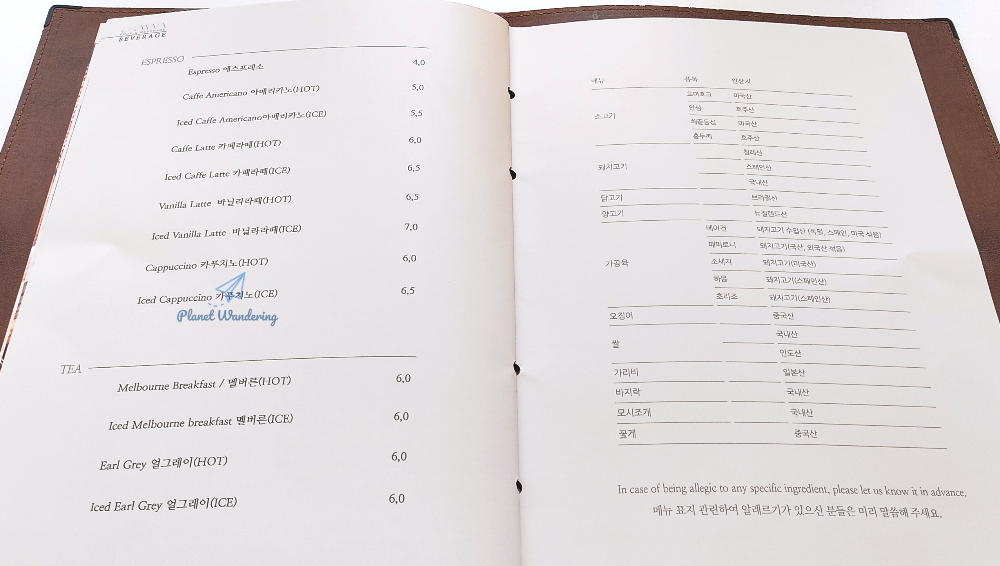 BEVERAGE
ESPRESSO
Espresso 에스프레소 4,0
Caffe Americano 아메리카노(HOT) 5,0
Iced Caffe Americano아메리카노(ICE) 5,5
Caffe Latte 카페라떼(HOT) 6,0
Iced Caffe Latte 카페라떼(ICE) 6,5
Vanilla Latte 바닐라라떼(HOT) 6,5
Iced Vanilla Latte 바닐라라떼(ICE) 7,0
Cappuccino 카푸치노(HOT) 6,0
Iced Cappuccino 카푸치노(ICE) 6,5
Planet Wandering
TEA
Melbourne Breakfast / 멜버른(HOT) 6,0
Iced Melbourne breakfast 멜버른(ICE) 6,0
Earl Grey 얼그레이(HOT) 6,0
Iced Earl Grey 얼그레이(ICE) 6,0
메뉴 품목 원산지
소고기
토마호크 미국산
안심 호주산
채끝등심 미국산
홍두깨 호주산
돼지고기
칠레산
스페인산
국내산
닭고기 브라질산
양고기 뉴질랜드산
가공육
베이컨 돼지고기 수입산 (독일, 스페인, 미국 섞음)
페퍼로니 돼지고기(국산, 외국산 섞음)
소세지 돼지고기(미국산)
하몽 돼지고기(스페인산)
초리조 돼지고기(스페인산)
오징어 중국산
쌀
국내산
인도산
가리비 일본산
바지락 국내산
모시조개 국내산
꽃게 중국산
In case of being allegic to any specific ingredient, please let us know it in advance.
메뉴 표지 관련하여 알레르기가 있으신 분들은 미리 말씀해 주세요.